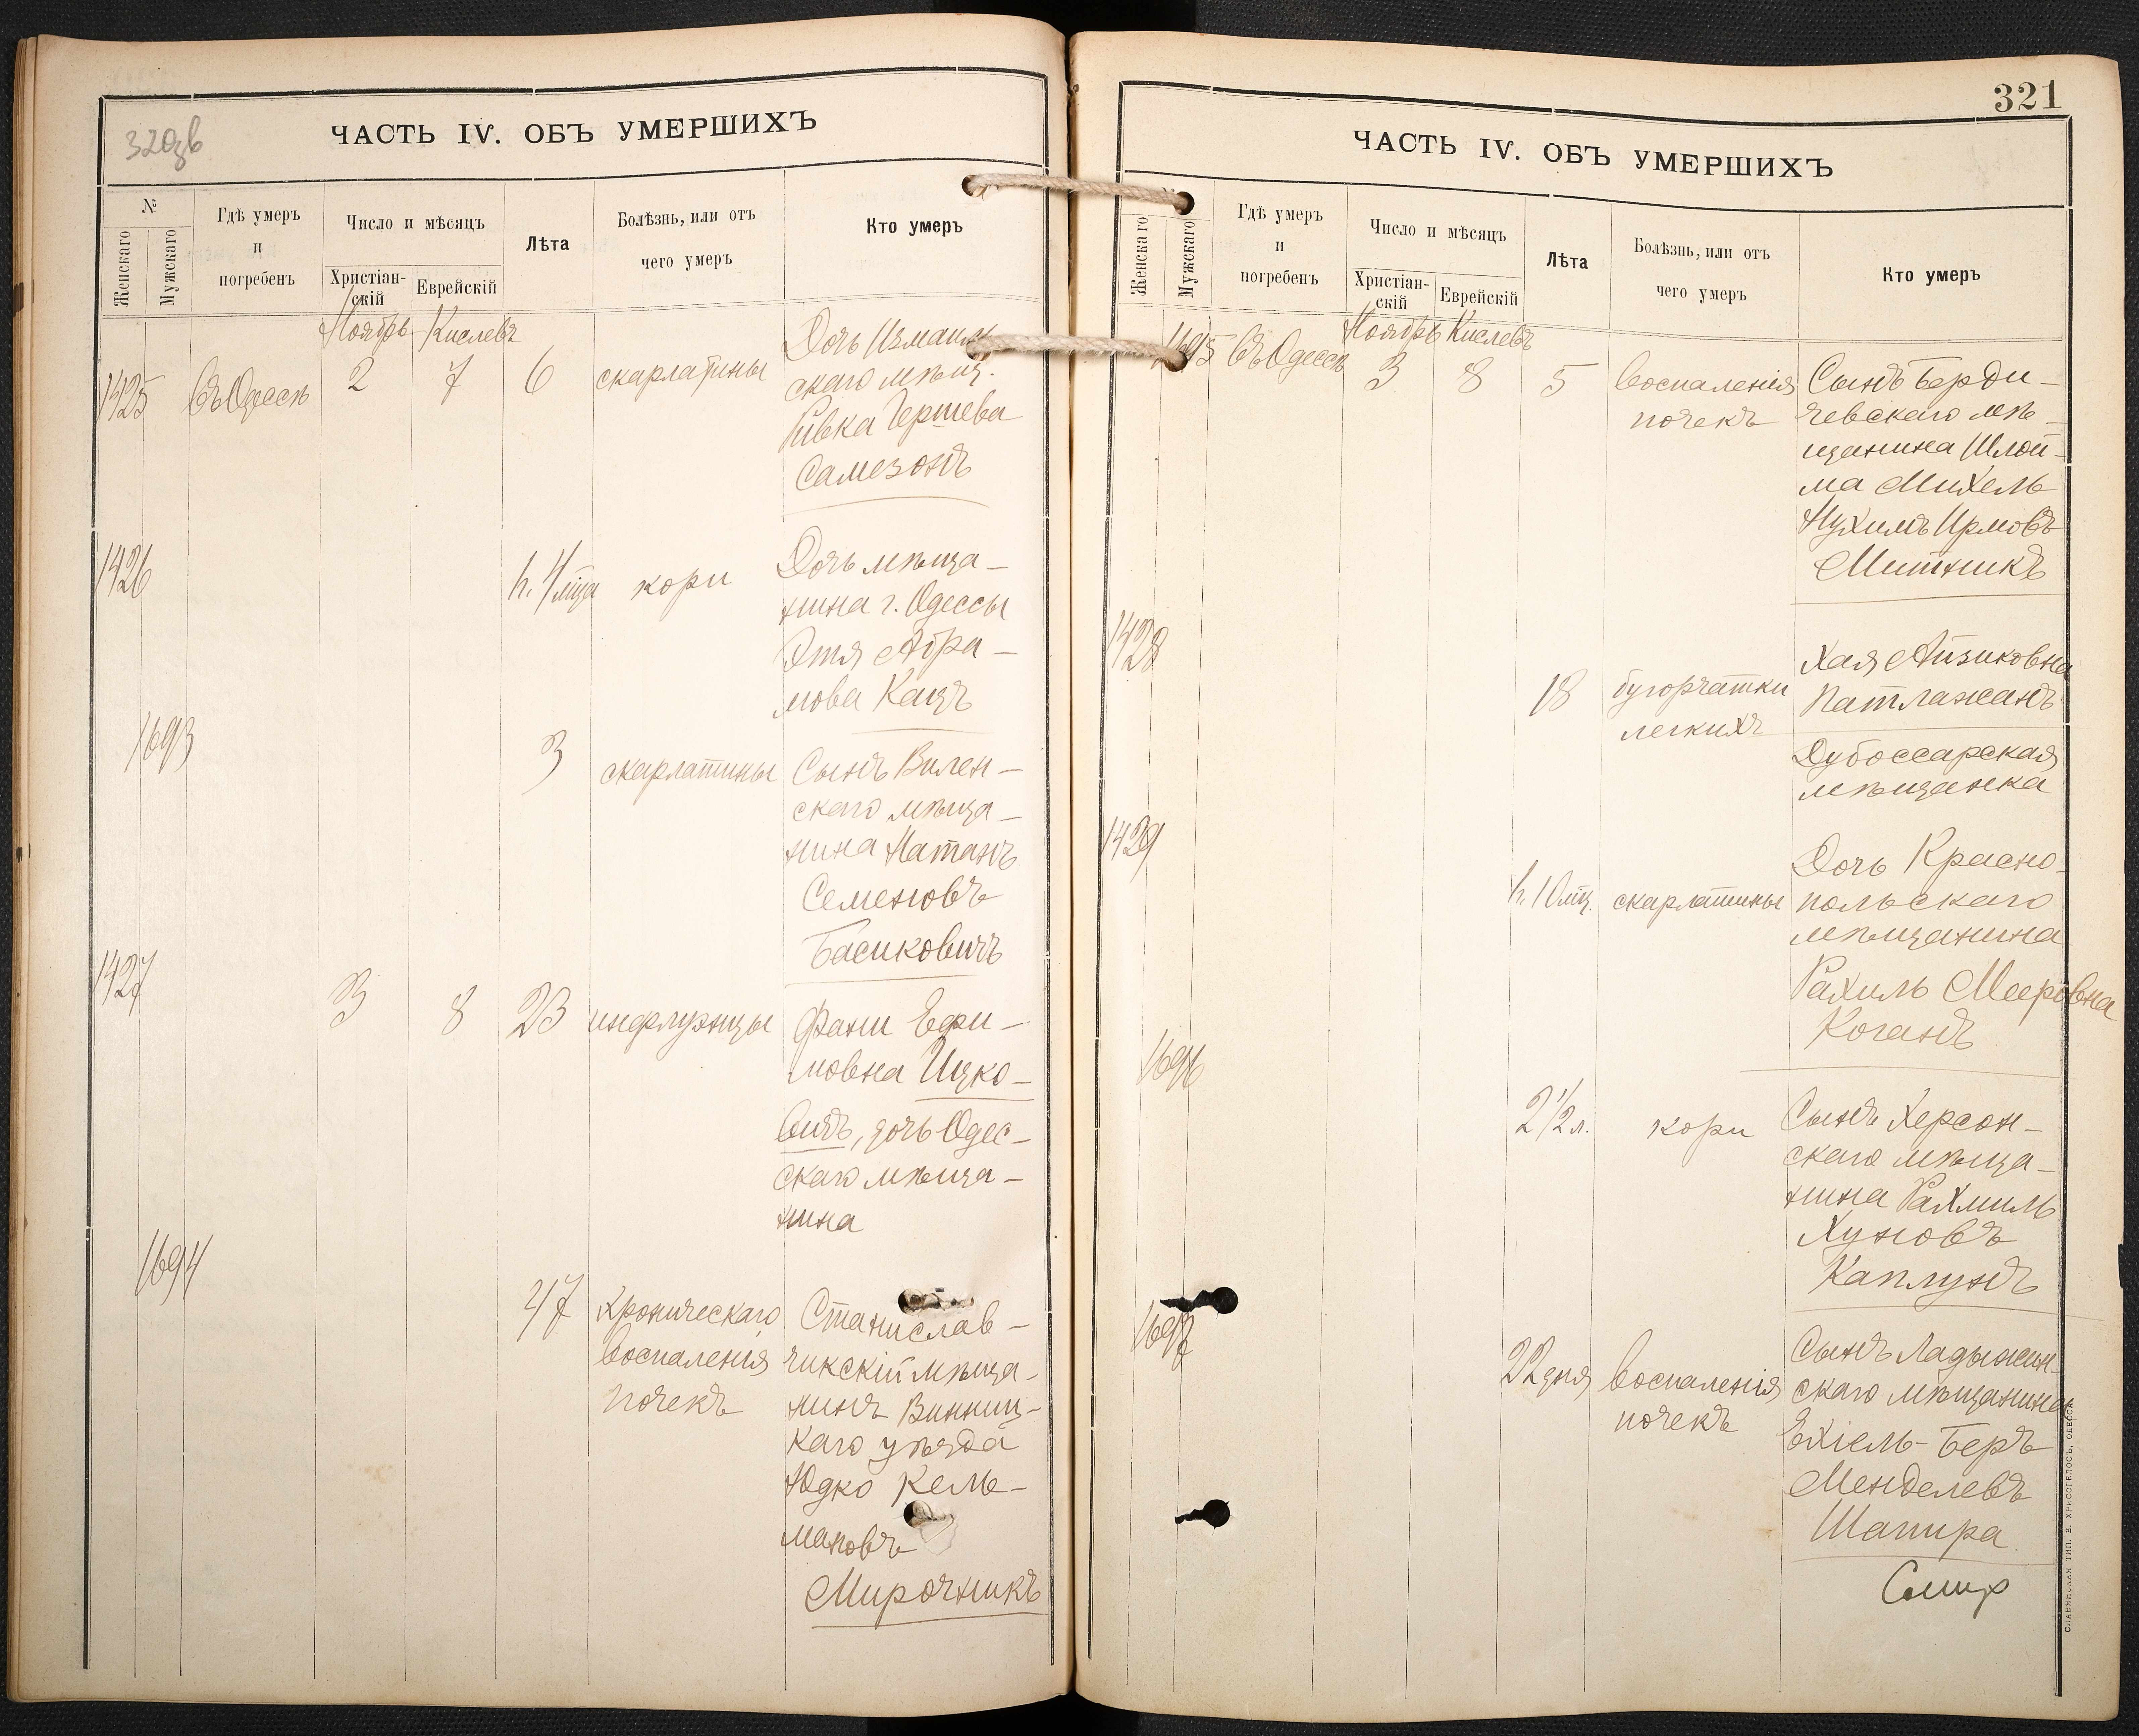 320зв
ЧАСТЬ IV. ОБЪ УМЕРШИХЪ
№
Женскаго
Мужскаго
Гдѣ умеръ
и
погребенъ
Число и мѣсяцъ
Христіан-
скій
Еврейскій
Лѣта
Болѣзнь, или отъ
чего умеръ
Кто умеръ
Ноябрь Кислевъ
1425 Въ Одессѣ 2 7 6 скарлатины
Дочь Измаиль
скаго мѣщ.
Ривка Гершева
Самезонъ
1426
4 мца кори
Дочь мѣща-
нина г. Одессы
Этя Абра-
мова Кацъ
1693
3 скарлатины
Сынъ Вилен-
скаго мѣща-
нина Натанъ
Семеновъ
Басиковичъ
1427
3 8 23 инфлуэнцы
Фани Ефи-
мовна Ицко-
вичъ, дочь Одес-
скаго мѣща-
нина
1694
47 хроническаго
воспаленія
почекъ
Станислав-
чикскій мѣща-
нинъ Винниц-
каго уѣзда
Юдко Кель-
мановъ
Мирочникъ
321
ЧАСТЬ IV. ОБЪ УМЕРШИХЪ
Женскаго
Мужскаго
Гдѣ умеръ
и
погребенъ
Число и мѣсяцъ
Христіан-
скій
Еврейскій
Лѣта
Болѣзнь, или отъ
чего умеръ
Кто умеръ
Ноябрь Кислевъ
1695 Въ Одессѣ 3 8 5 воспаленія
почекъ
Сынъ Берди-
чевскаго мѣ-
щанина Шлой-
ма Михель
Нухимъ Ирмовъ
Митникъ
1428
18 бугорчатки
легкихъ
Хая Айзиковна
Патлажанъ
Дубоссарская
мѣщанка
1429
10 мц. скарлатины
Дочь Красно-
польскаго
мѣщанина
Рахиль Мееровна
Коганъ
1696
2 1/2 л. кори
Сынъ Херсон-
скаго мѣща-
нина Рахмиль
Хуновъ
Каплунъ
1697
22 дня воспаленія
почекъ
Сынъ Ладыжин-
скаго мѣщанина
Ехіель-Беръ
Менделевъ
Шапира
СЛАВЯНСКАЯ ТИП. Е. ХРИСОГЕЛОСЪ, ОДЕССА.